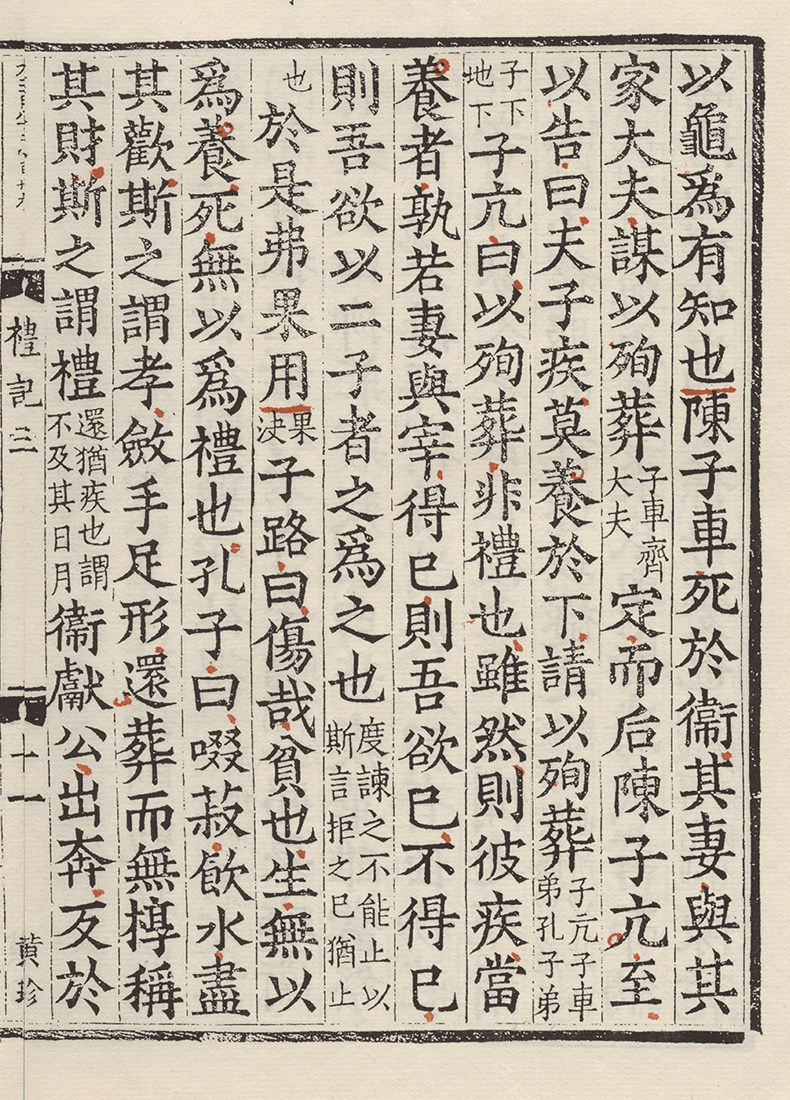 以龜爲有知也陳子車死於衞其妻與其
家大夫謀以殉葬子車齊大夫定而后陳子亢至
以告曰夫子疾莫養於下請以殉葬子亢子車弟孔子弟
子下地下子亢曰以殉葬非禮也雖然則彼疾當
養者孰若妻與宰得已則吾欲已不得已
則吾欲以二子者之爲之也度諫之不能止以斯言拒之已猶止
也於是弗果用果決子路曰傷哉貧也生無以
爲養死無以爲禮也孔子曰啜菽飮水盡
其歡斯之謂孝斂手足形還葬而無椁稱
其財斯之謂禮還猶疾也謂不及其日月衞獻公出奔反於
禮記三
十一
黄珍